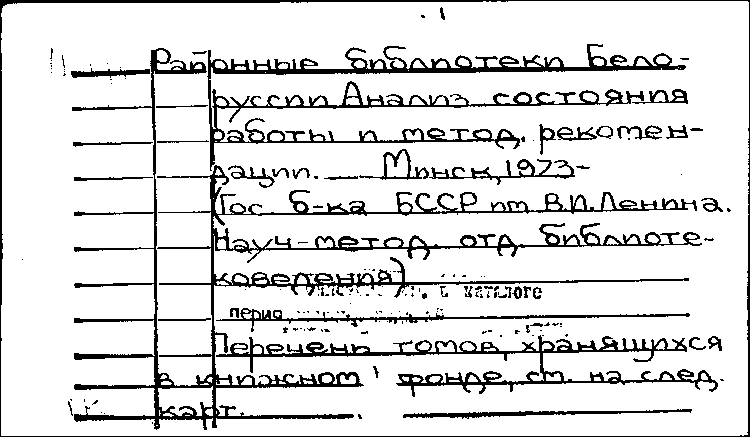 Районные библиотеки Бело-
руссии. Анализ состояния
работы и метод. рекомен-
дации. — Минск, 1973-
(Гос. б-ка БССР им. В.И. Ленина.
Науч-метод. отд. библиоте-
коведения)
в каталоге
перио
Перечень томов, хранящихся
в книжном фонде, см. на след.
карт.